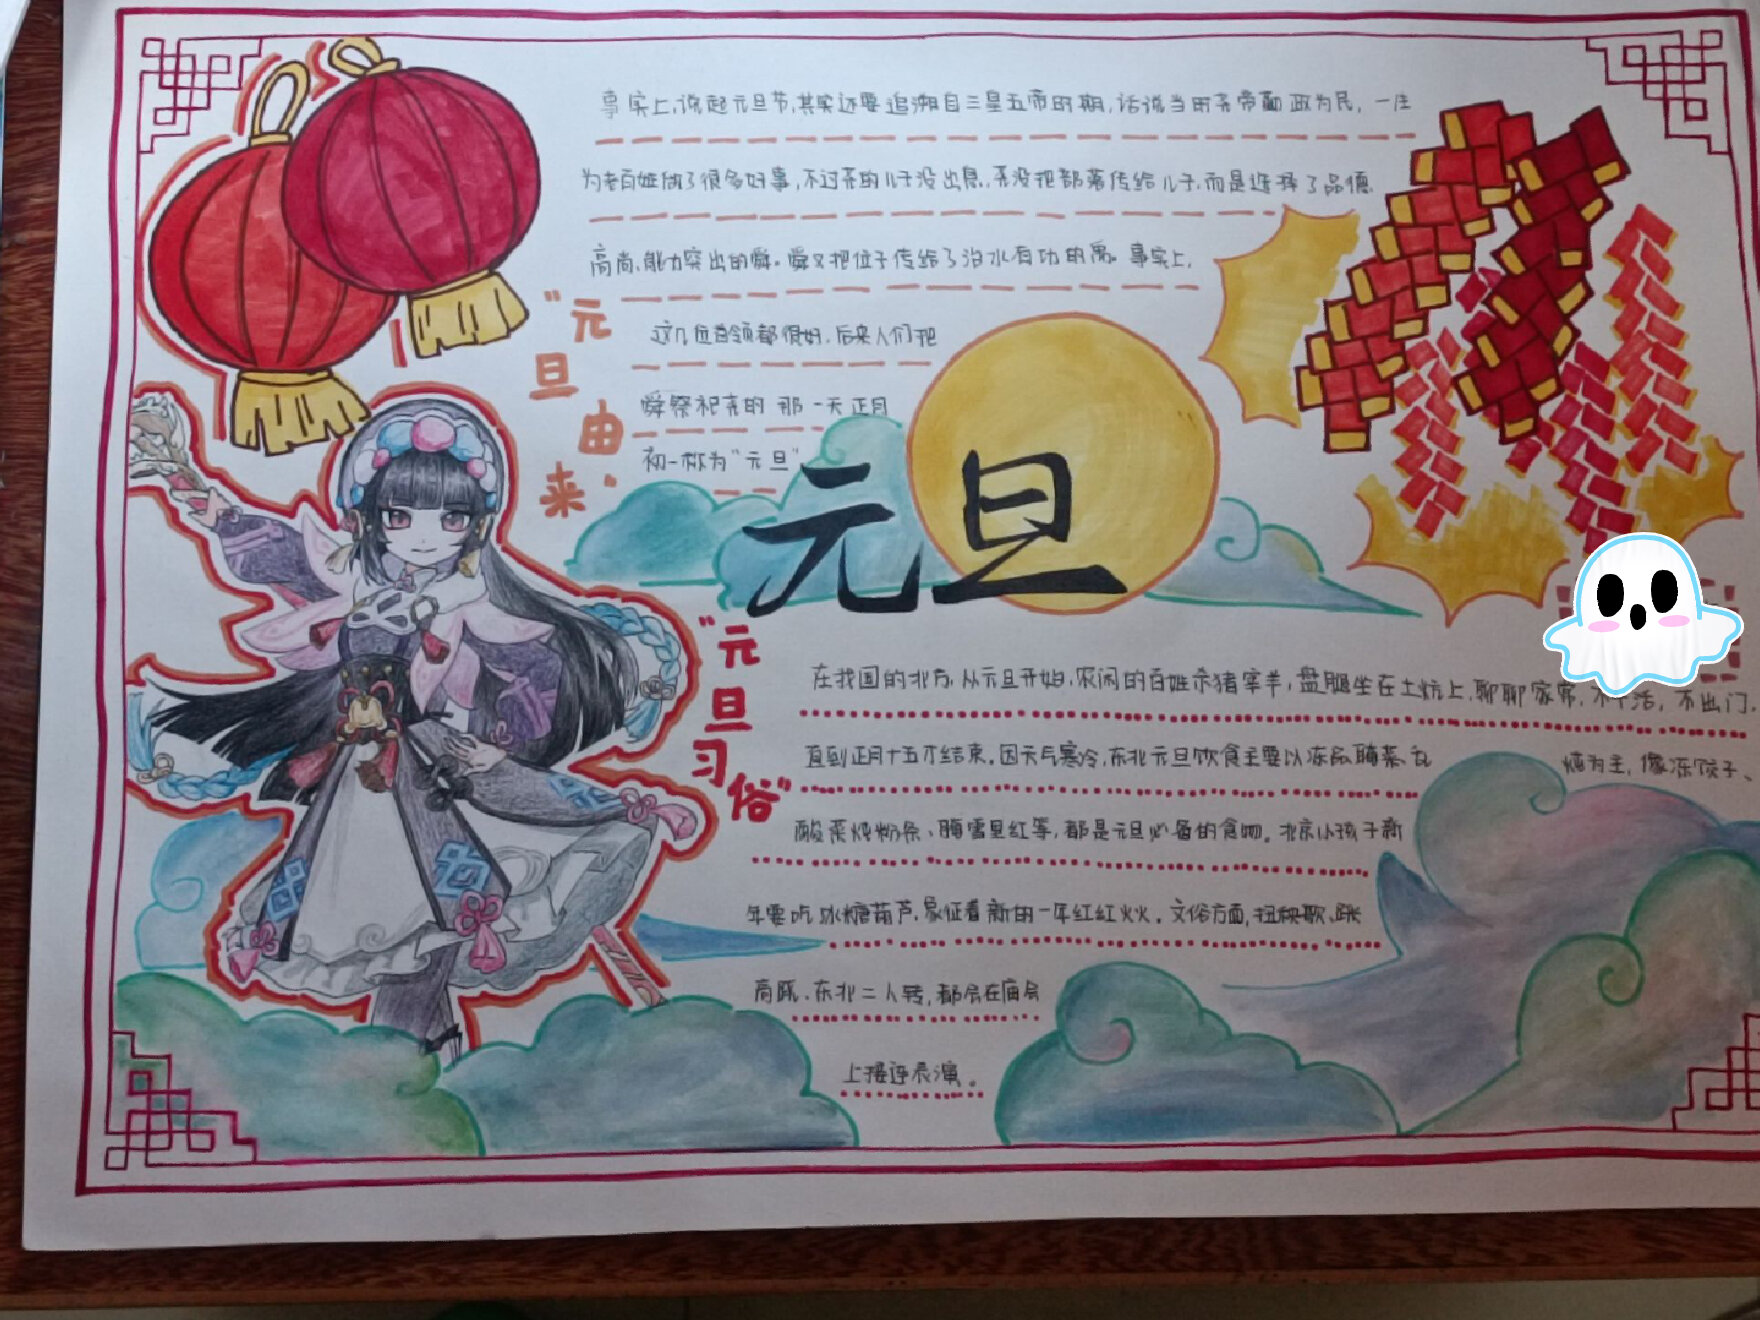 事实上,说起元旦节,其实还要追溯自三皇五帝时期,话说当时尧帝勤政为民,一生
为老百姓做了很多好事,不过尧的儿子没出息,尧没把部落传给儿子,而是选择了品德
高尚、能力突出的舜。舜又把位子传给了治水有功的禹。事实上,
这几位首领都很好,后来人们把
舜祭祀尧的那一天正月
初一称为“元旦”
“元旦由来”
元旦
“元旦习俗”
在我国的北方,从元旦开始,农闲的百姓杀猪宰羊,盘腿坐在土炕上,聊聊家常,不干活,不出门,
直到正月十五才结束。因天气寒冷,东北元旦饮食主要以冻品、腌菜、乱
炖为主,像冻饺子、
酸菜炖粉条、腌雪里红等,都是元旦必备的食物。北京小孩子新
年要吃冰糖葫芦,象征着新的一年红红火火。文俗方面,扭秧歌、踩
高跷、东北二人转,都会在庙会
上接连表演。